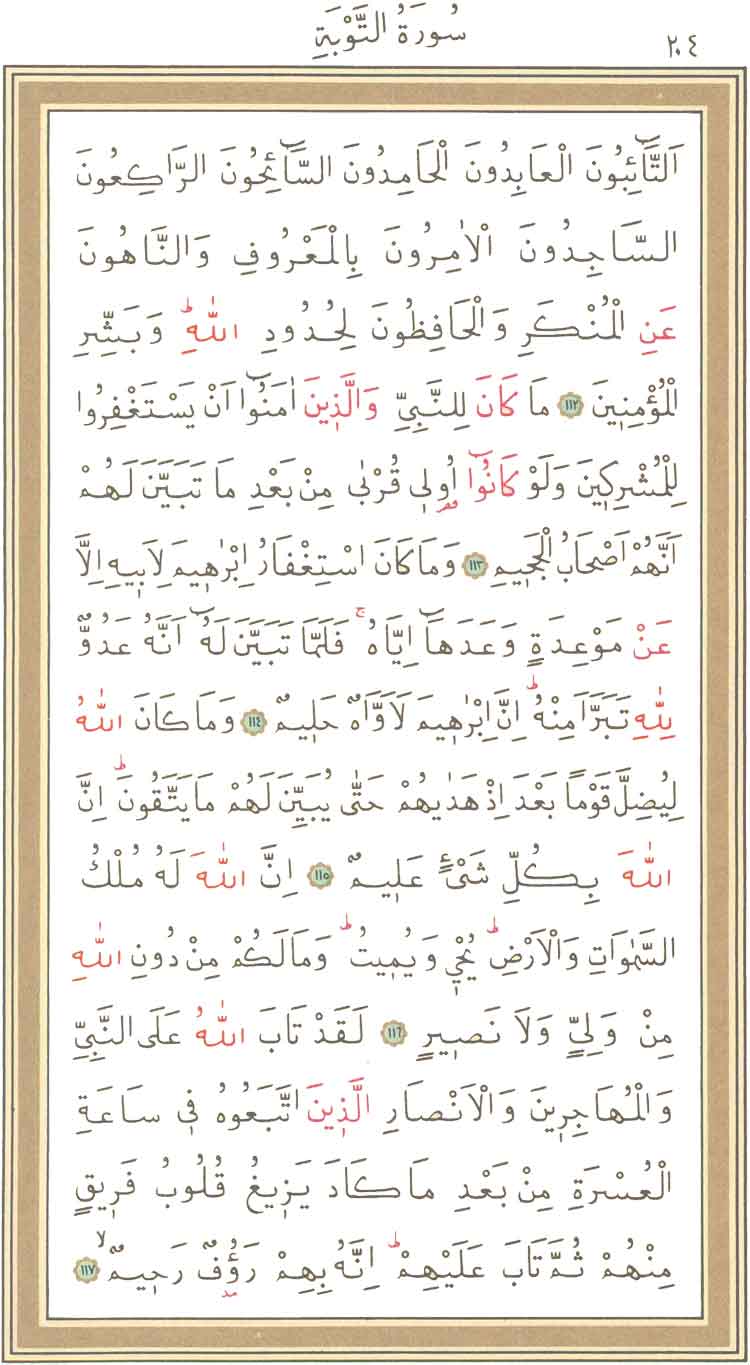 سُورَةُ التَّوْبَةِ ٢٠٤
اَلتَّٓائِبُونَ الْعَابِدُونَ الْحَامِدُونَ السَّٓائِحُونَ الرَّاكِعُونَ
السَّاجِدُونَ الْاٰمِرُونَ بِالْمَعْرُوفِ وَالنَّاهُونَ
عَنِ الْمُنْكَرِ وَالْحَافِظُونَ لِحُدُودِ اللّٰهِۜ وَبَشِّرِ
الْمُؤْمِن۪ينَ ﴿١١٢﴾ مَا كَانَ لِلنَّبِيِّ وَالَّذ۪ينَ اٰمَنُٓوا اَنْ يَسْتَغْفِرُوا
لِلْمُشْرِك۪ينَ وَلَوْ كَانُٓوا اُو۬ل۪ي قُرْبٰى مِنْ بَعْدِ مَا تَبَيَّنَ لَهُمْ
اَنَّهُمْ اَصْحَابُ الْجَح۪يمِ ﴿١١٣﴾ وَمَا كَانَ اسْتِغْفَارُ اِبْرٰه۪يمَ لِاَب۪يهِ اِلَّا
عَنْ مَوْعِدَةٍ وَعَدَهَٓا اِيَّاهُۚ فَلَمَّا تَبَيَّنَ لَهُٓ اَنَّهُ عَدُوٌّ
لِلّٰهِ تَبَرَّاَ مِنْهُۜ اِنَّ اِبْرٰه۪يمَ لَاَوَّاهٌ حَل۪يمٌ ﴿١١٤﴾ وَمَا كَانَ اللّٰهُ
لِيُضِلَّ قَوْماً بَعْدَ اِذْ هَدٰيهُمْ حَتّٰى يُبَيِّنَ لَهُمْ مَا يَتَّقُونَۜ اِنَّ
اللّٰهَ بِكُلِّ شَيْءٍ عَل۪يمٌ ﴿١١٥﴾ اِنَّ اللّٰهَ لَهُ مُلْكُ
السَّمٰوَاتِ وَالْاَرْضِۜ يُحْي۪ وَيُم۪يتُۜ وَمَا لَكُمْ مِنْ دُونِ اللّٰهِ
مِنْ وَلِيٍّ وَلَا نَص۪يرٍ ﴿١١٦﴾ لَقَدْ تَابَ اللّٰهُ عَلَى النَّبِيِّ
وَالْمُهَاجِر۪ينَ وَالْاَنْصَارِ الَّذ۪ينَ اتَّبَعُوهُ ف۪ي سَاعَةِ
الْعُسْرَةِ مِنْ بَعْدِ مَا كَادَ يَز۪يغُ قُلُوبُ فَر۪يقٍ
مِنْهُمْ ثُمَّ تَابَ عَلَيْهِمْۜ اِنَّهُ بِهِمْ رَؤُ۫فٌ رَح۪يمٌۙ ﴿١١٧﴾